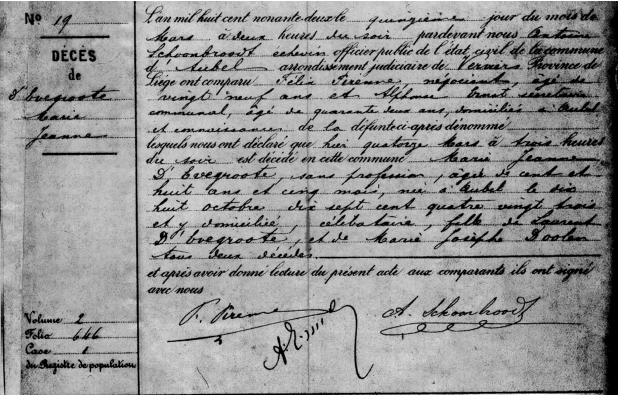 No 19
DÉCÈS
de
D'Evegroote
Marie
Jeanne
L'an mil huit cent nonante deux le quinzième jour du mois de
Mars à deux heures du soir pardevant nous Antoine
Schoonbroodt échevin officier public de l'état civil de la commune
d'Aubel arrondissement judiciaire de Verviers Province de
Liége ont comparu Félix Pirenne, négociant, âgé de
vingt neuf ans et Alphonse Ernst secrétaire
communal, âgé de quarante deux ans, domiciliés à Aubel
et connaissances de la défunte ci-après dénommé
lesquels nous ont déclaré que hier quatorze Mars à trois heures
du soir est décédé en cette commune Marie Jeanne
D'Evegroote, sans profession, âgée de cent et
huit ans et cinq mois, née à Aubel le dix
huit octobre dix sept cent quatre vingt trois
et y domiciliée, célibataire, fille de Laurent
D'Evegroote, et de Marie Josèphe Doolen
tous deux décédés
et après avoir donné lecture du présent acte aux comparants ils ont signé
avec nous
F. Pirenne
A. Schoonbroodt
Volume 2
Folio 646
Case 1
du Registre de population